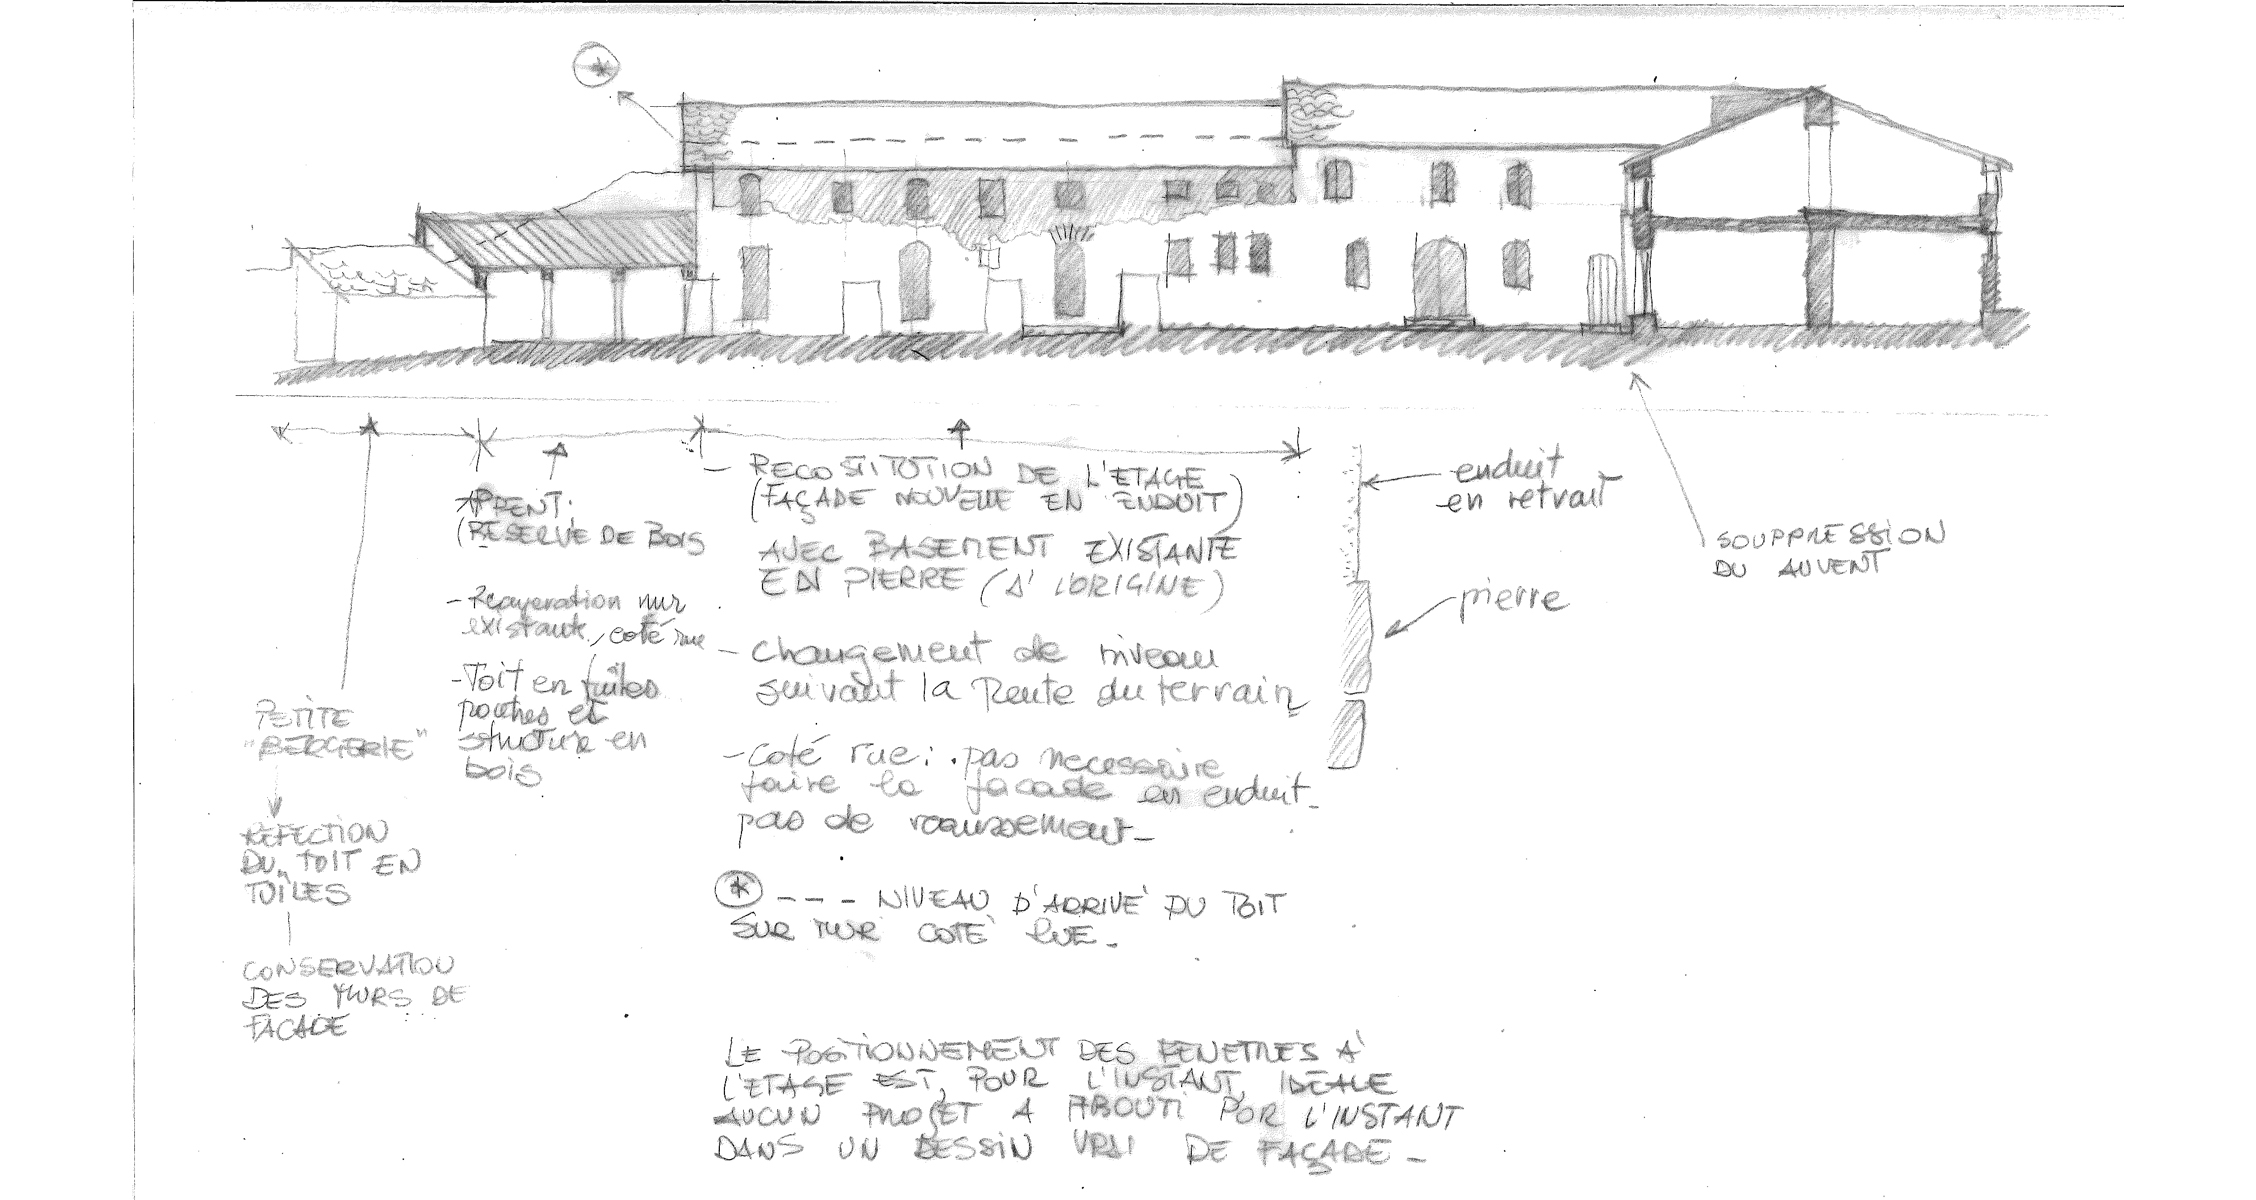 PETITE
"BERGERIE"
REFECTION
DU TOIT EN
TOILES
CONSERVATION
DES MURS DE
FACADE
APPENT.
(RESERVE DE BOIS
- Recuperation mur
existante, coté rue
- Toit en tuiles
poutres et
structure en
bois
- RECOSTITUTION DE L'ETAGE
(FAÇADE NOUVELLE EN ENDUIT)
AVEC BASEMENT EXISTANTE
EN PIERRE (A L'ORIGINE)
- changement de niveau
suivant la pente du terrain
- coté rue: pas necessaire
faire la facade en enduit -
pas de
* - - - NIVEAU D'ARRIVÉ DU TOIT
SUR MUR COTÉ RUE -
LE POSITIONNEMENT DES FENETRES A
L'ETAGE EST, POUR L'INSTANT, IDEALE
AUCUN PROJET A ABOUTI POR L'INSTANT
DANS UN DESSIN VRAI DE FAÇADE -
enduit
en retrait
pierre
SOUPPRESSION
DU AUVENT
*